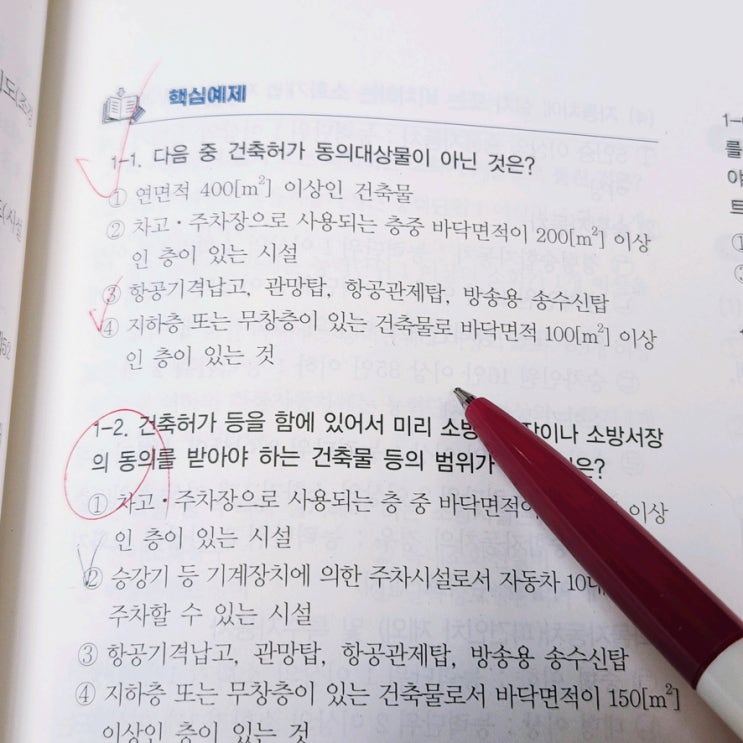 핵심예제
1-1. 다음 중 건축허가 동의대상물이 아닌 것은?
① 연면적 400[m²] 이상인 건축물
② 차고·주차장으로 사용되는 층중 바닥면적이 200[m²] 이상
인 층이 있는 시설
③ 항공기격납고, 관망탑, 항공관제탑, 방송용 송수신탑
④ 지하층 또는 무창층이 있는 건축물로 바닥면적 100[m²] 이상
인 층이 있는 것
1-2. 건축허가 등을 함에 있어서 미리 소방 장이나 소방서장
의 동의를 받아야 하는 건축물 등의 범위가 은?
① 차고·주차장으로 사용되는 층 중 바닥면적이 이상
인 층이 있는 시설
② 승강기 등 기계장치에 의한 주차시설로서 자동차 10대
주차할 수 있는 시설
③ 항공기격납고, 관망탑, 항공관제탑, 방송용 송수신탑
④ 지하층 또는 무창층이 있는 건축물로서 바닥면적이 150[m²]
이상인 층이 있는 것